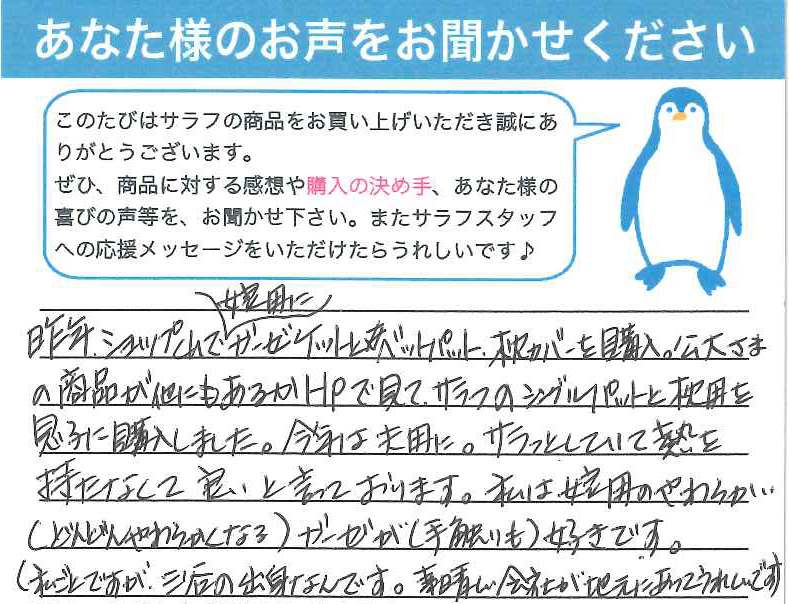 あなた様のお声をお聞かせください
このたびはサラフの商品をお買い上げいただき誠にあ
りがとうございます。
ぜひ、商品に対する感想や購入の決め手、あなた様の
喜びの声等を、お聞かせ下さい。またサラフスタッフ
への応援メッセージをいただけたらうれしいです♪
嫁用に
昨年、ショップで ガーゼケットと ベットパット、枕カバーを購入。 さま
の商品が他にもあるかHPで見て、サラフのシングルパットと枕用を
息子に購入しました。今年は夫用に。サラっとしていて熱を
持たなくて良いと言っております。私は嫁用のやわらかい
(どんどんやわらかくなる)ガーゼが(手触りも)好きです。
(私ごとですが、三河の出身なんです。素晴しい会社が地元にあってうれしいです